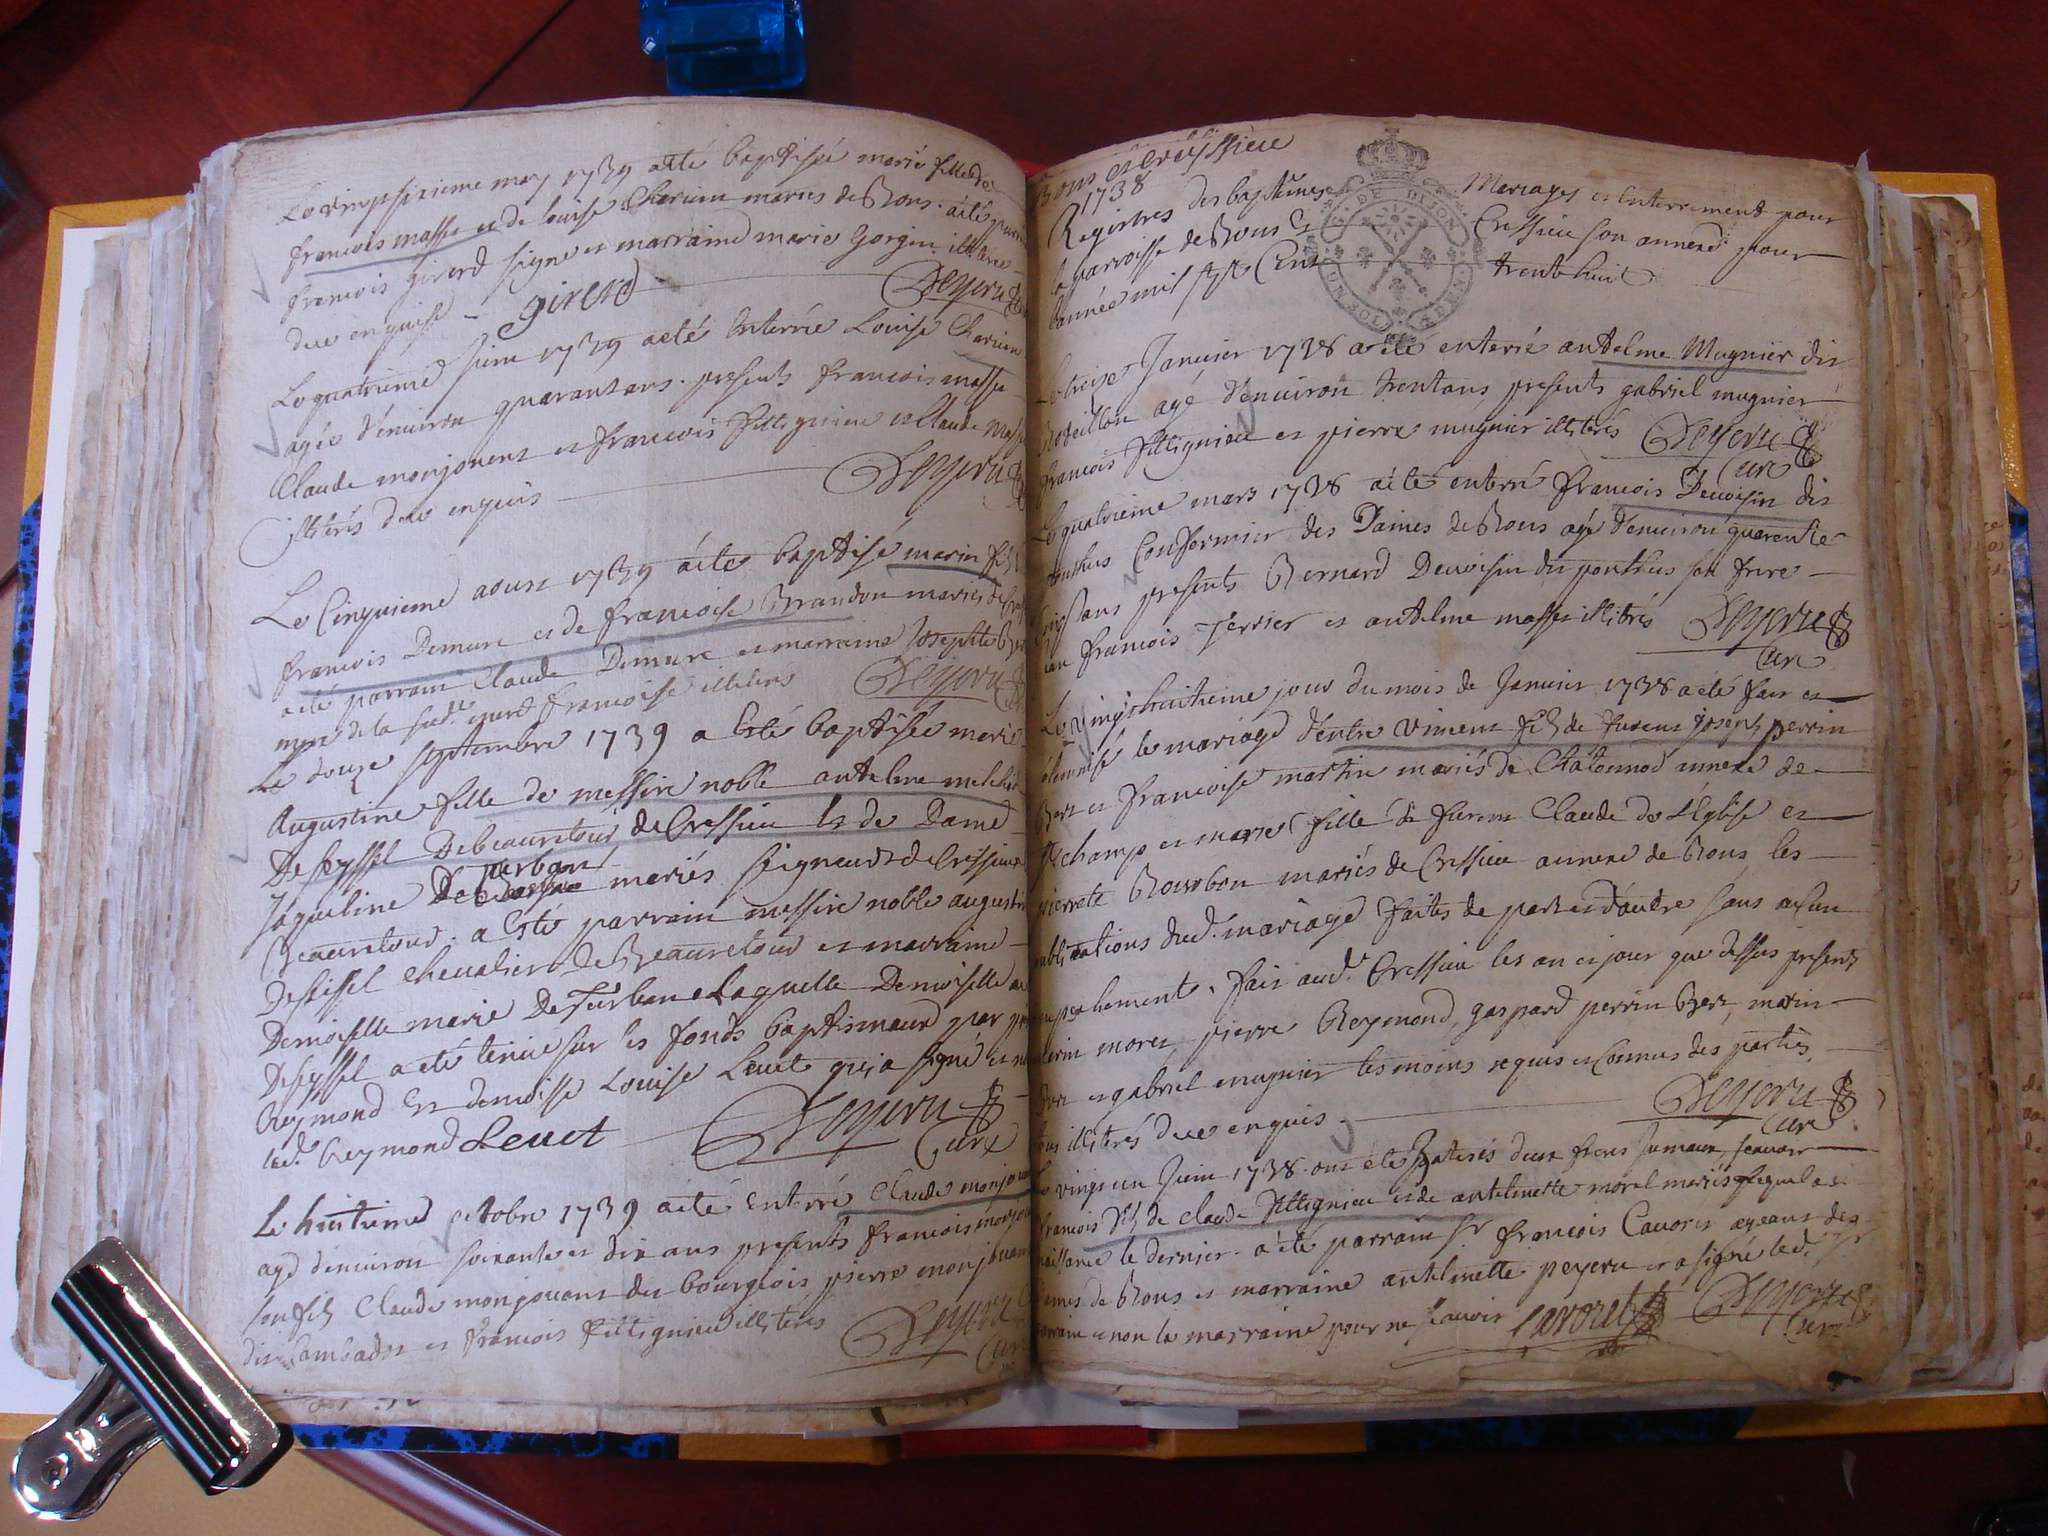 Le vingtsixieme may 1739 a été baptisée marie fille de
francois masse et de louise Charvin mariés de Rous. a été parrain
francois girerd signé et marraine marie gorgin illiterée
due enquise - girerd Deyeru
Le quatrieme juin 1739 a été enterrée Louise Charvin
agée d'environ quarant ans. presents francois masse
Claude monjouent et francois fittignieu et Claude masse
illiterés deue enquis Deyeru
Le Cinquieme aoust 1739 a été baptisé marin fils
francois Demure et de francoise Brandon mariés de
a été parrain Claude Demure et marraine Josephte
de la sud. francoise illiterés Deyeru
Le douze septembre 1739 a esté baptisée marie
Augustine fille de messire noble antelme melchior
De seyssel Debeauretour de Cressieu et de Dame
Jaqueline De Turban mariés seigneurs de Cressieu
Beauretour. a esté parrain messire noble augustin
De seissel chevalier de Beauretour et marraine
Demoiselle marie De Turban Laquelle Demoiselle
De seyssel a eté tenue sur les fonds baptismaux par
Reymond et demoisse Louise Leuet qui a signé et
led. Reymond Leuet Deyeru
Curé
Le huitieme octobre 1739 a été enterré Claude monjouent
agé d'environ soixante et dix ans presents francois monjouent
son fils Claude monjouent des bourgeois pierre monjouent
dit ambador et francois fittignieu illiterés Deyeru
Curé
Rous et Cressieu
1738
Registres des baptêmes Mariages et Enterrement pour
la parroisse de Rous et Cressieu son annexe pour
l'année mil sept Cent trente huit
Le treize Janvier 1738 a été enterré antelme Mugnier dit
Boteillon agé d'environ trent ans presents gabriel mugnier
francois fittignieu et pierre mugnier illiterés Deyeru
Curé
Le quatrieme mars 1738 a été enterré francois Devoisin dit
ponthus Confermier des Dames de Rous agé d'environ quarente
cinq ans presents Bernard Devoisin dit ponthus son frere
jean francois Terrier et antelme masse illitérés Deyeru
Curé
Le vingthuitieme jour du mois de Janvier 1738 a été fait et
solennisé le mariage d'entre vincent fils de fueut joseph perrin
Bert et francoise martin mariés de Chatonnod annexe de
st champ et marie fille de fueut Claude de l'Eglise et
pierrete Bourbon mariés de Cressieu annexe de Rous les
publications dud. mariage faites de part et d'autre sans aucun
empechement. fait aud. Cressieu les an et jour que dessus presents
morez pierre Reymond, gaspard perrin Bert, marin
et gabriel mugnier tesmoins requis et Connus des parties
tous illiterés deue enquis. Deyeru
Curé
Le vingt un Juin 1738 ont été batisés deux freres jumeaux, scavoir
francois fils de claude fittignieu et de antelmette morel mariés
naissance le dernier. a été parrain sr francois Cavoret
dames de Rous et marraine antelmette peyeru et a signé led. sr
parrain et non la marraine pour ne scavoir Cavoret Deyeru
Curé